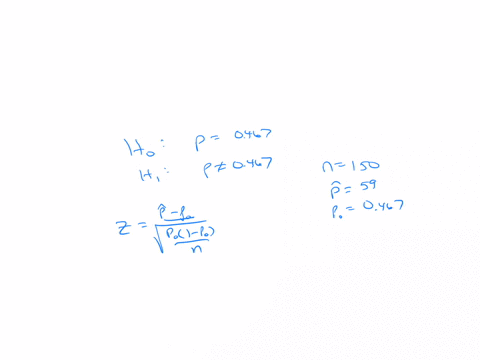 H₀: p = 0.467
H₁: p ≠ 0.467
n = 150
p̂ = 59
p₀ = 0.467
z = (p̂ - p₀) / √(p₀(1-p₀) / n)